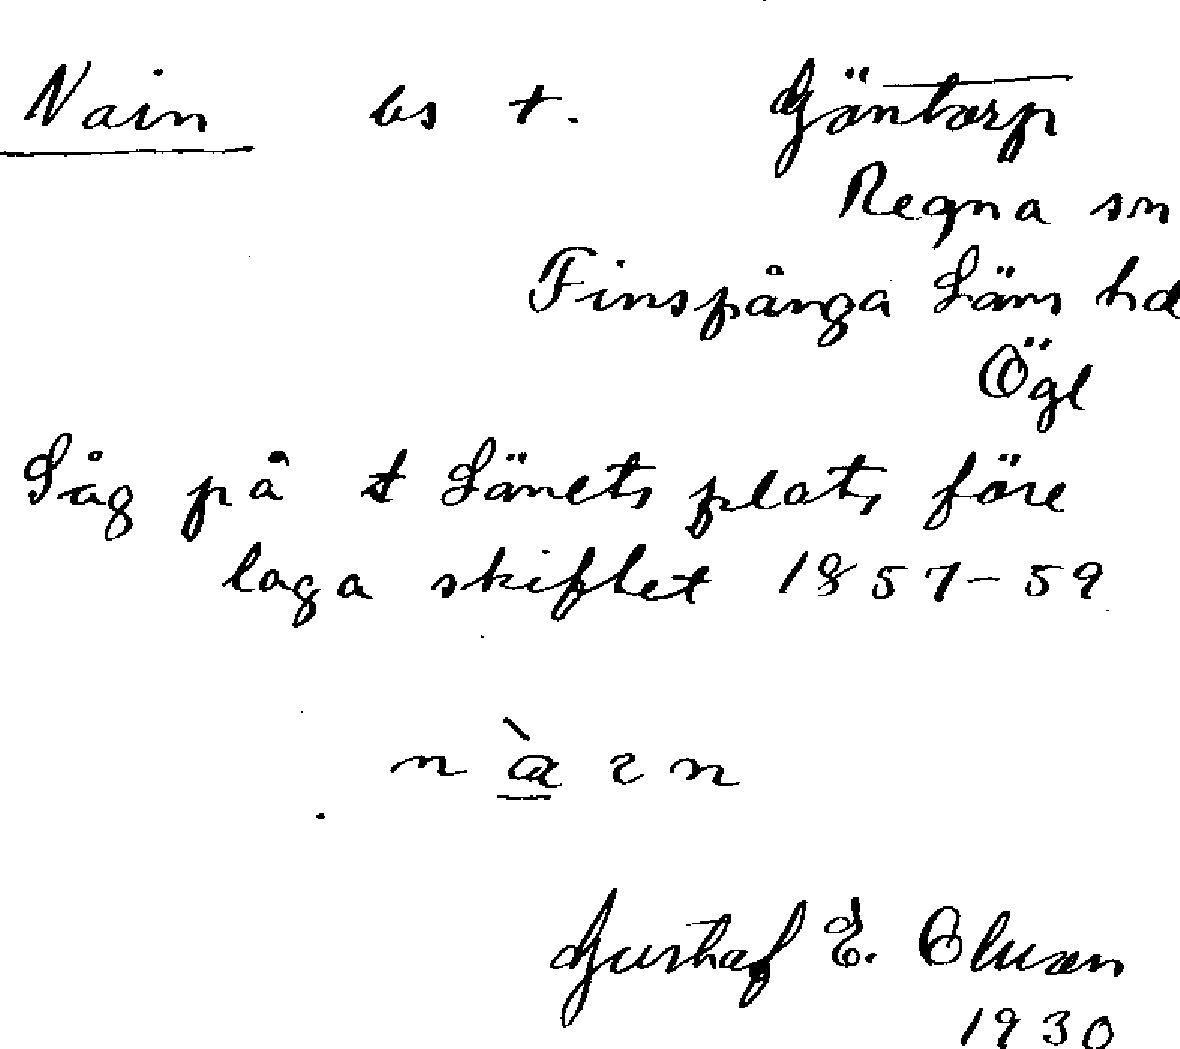 Nain bs t. Gäntorp
Regna sn
Finspånga Läns hd
Ögl
Låg på t Länets plats före
laga skiftet 1857-59
n à i n
Gustaf E. Olsson
1930